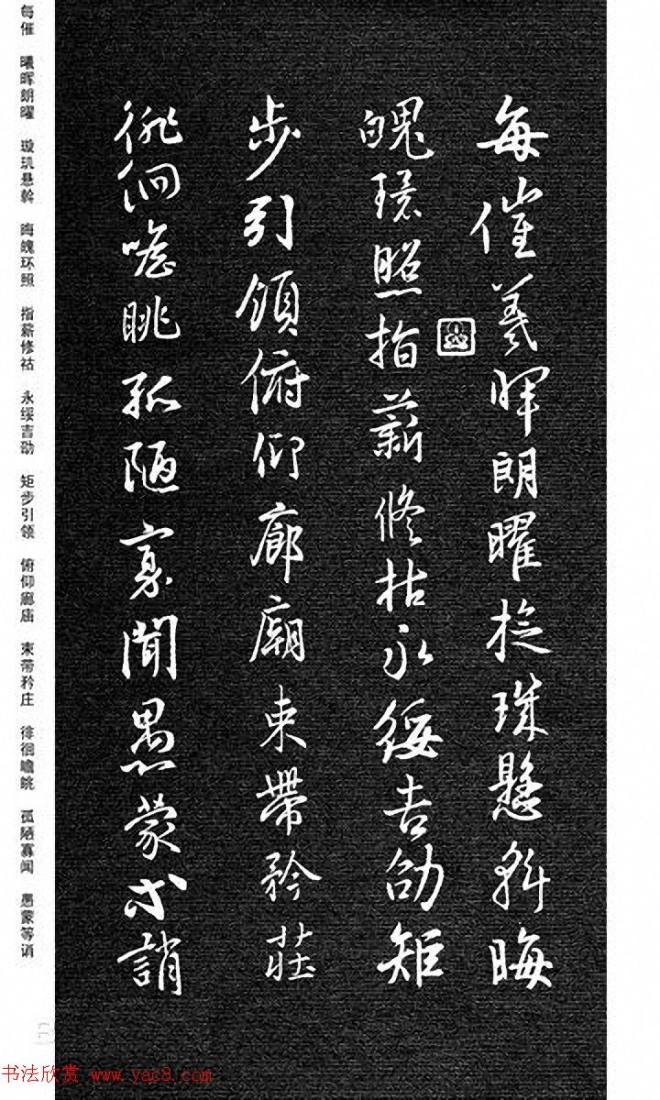 每催羲暉朗曜旋珠懸斡晦
魄環照指薪脩祜永綏吉劭矩
步引領俯仰廊廟束帶矜莊
徘徊瞻眺孤陋寡聞愚蒙等誚
每催 曦晖朗曜 璇玑悬斡 晦魄环照 指薪修祜 永绥吉劭 矩步引领 俯仰廊庙 束带矜庄 徘徊瞻眺 孤陋寡闻 愚蒙等诮
书法欣赏 www.yac8.com